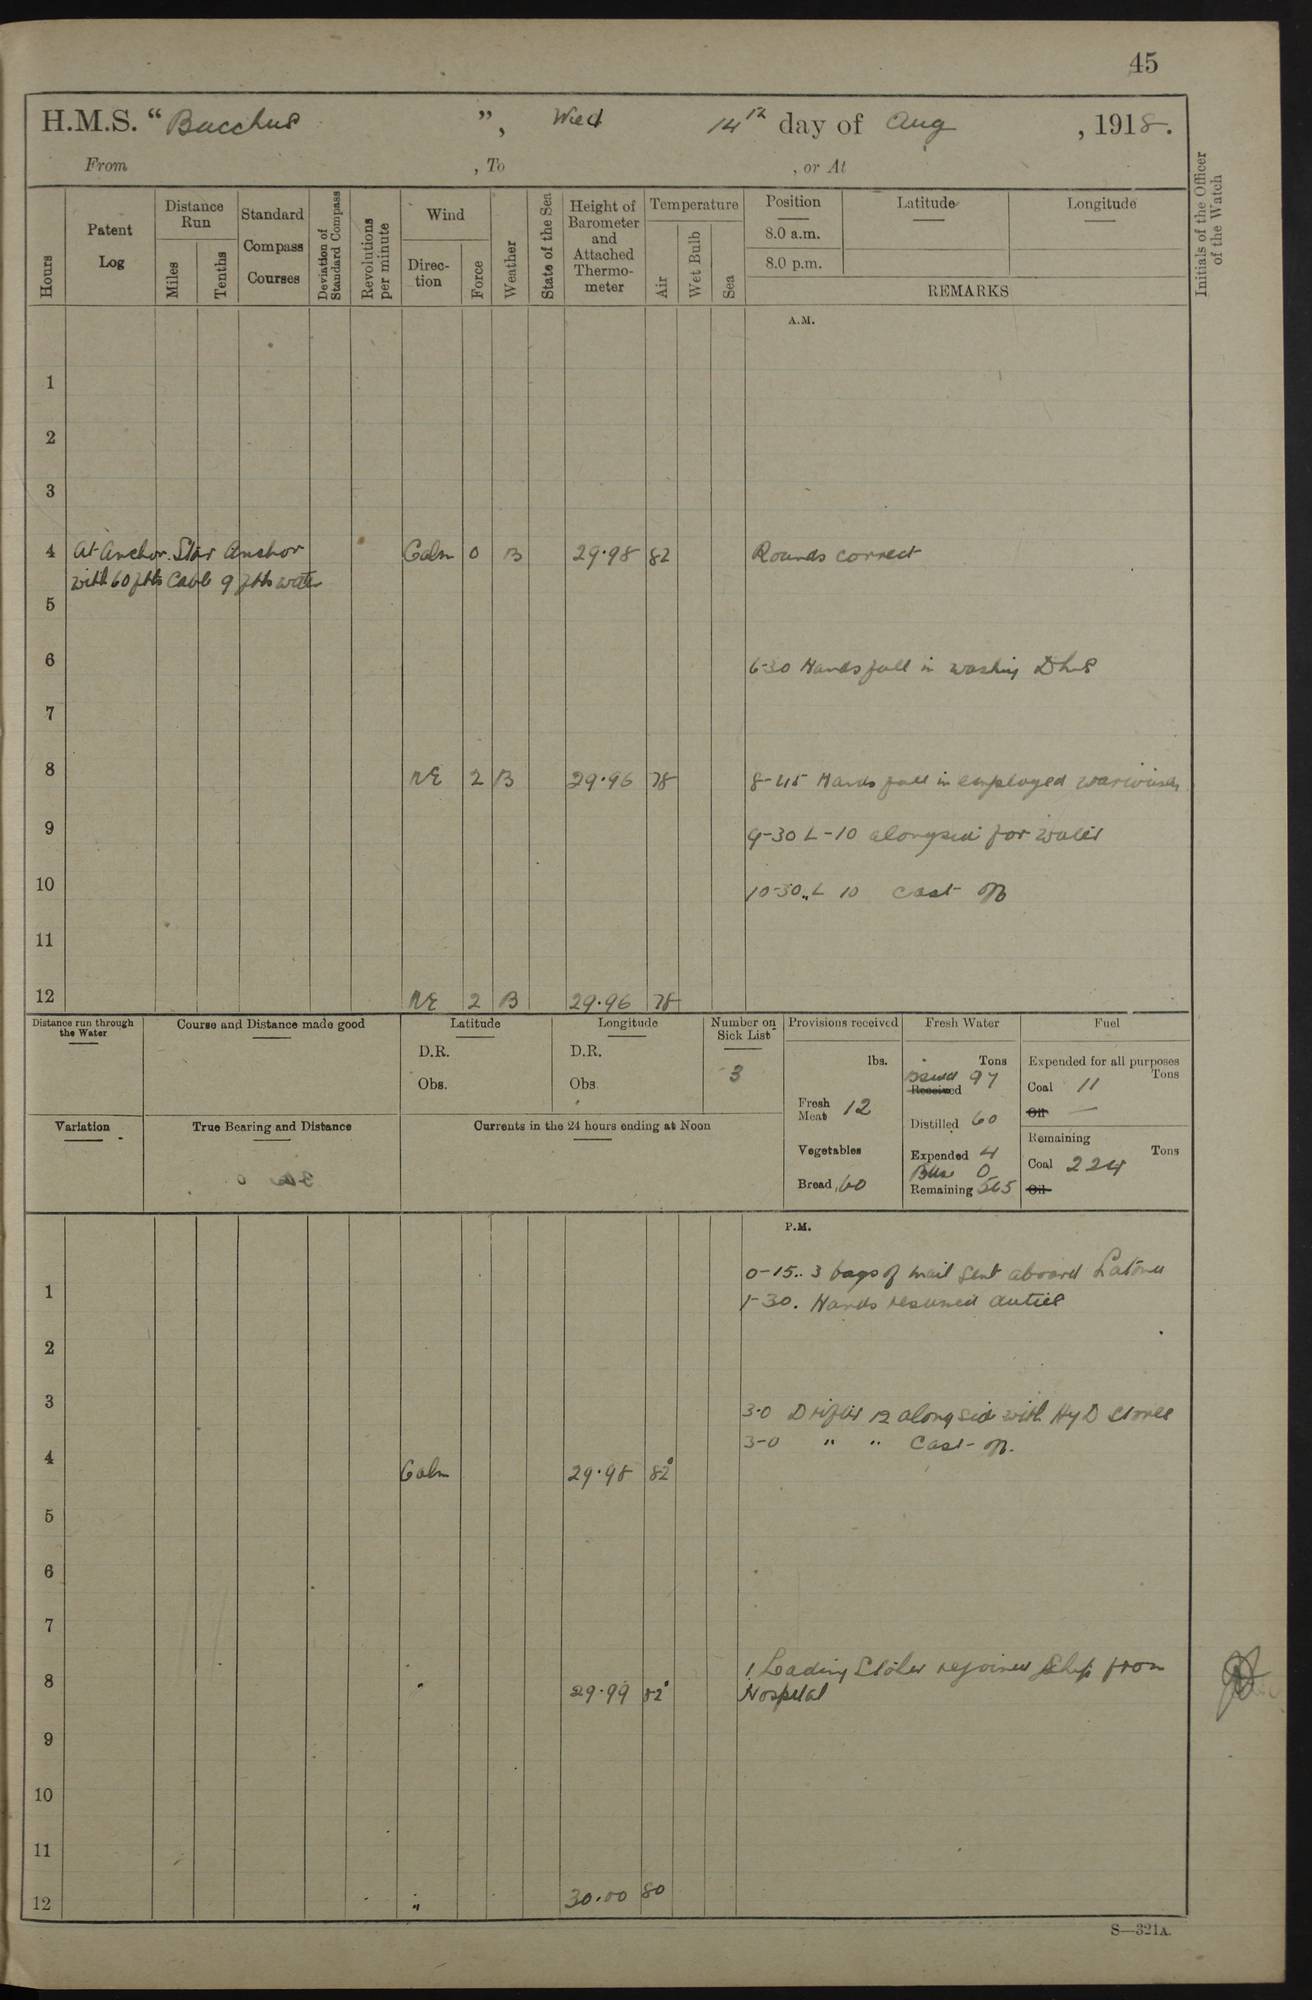 45
H.M.S. “Bacchus ”, Wed 14th day of Aug , 1918.
From , To , or At
Hours
Patent Log
Distance Run
Miles
Tenths
Standard Compass Courses
Deviation of Standard Compass
Revolutions per minute
Wind
Direc-tion
Force
Weather
State of the Sea
Height of Barometer and Attached Thermo-meter
Temperature
Air
Wet Bulb
Sea
Position
8.0 a.m.
8.0 p.m.
Latitude
Longitude
REMARKS
Initials of the Officer of the Watch
A.M.
1
2
3
4 At Anchor. Star Anchor Calm 0 B 29.98 82 Rounds correct
with 60 fths Cable 9 fths water
5
6 6-30 Hands fall in washing
7
8 NE 2 B 29.96 78 8-45 Hands fall in employed
9 9-30 L-10 alongside for water
10 10-30 „ L 10 cast off
11
12 NE 2 B 29.96 78
Distance run through the Water
Course and Distance made good
Latitude
D.R.
Obs.
Longitude
D.R.
Obs.
Number on Sick List
3
Provisions received
lbs.
Fresh Meat 12
Vegetables
Bread 60
Fresh Water
Tons
Received 97
Distilled 60
Expended 4
0
Remaining 565
Fuel
Expended for all purposes
Tons
Coal 11
Oil —
Remaining
Tons
Coal 224
Oil
Variation
True Bearing and Distance
Currents in the 24 hours ending at Noon
P.M.
0-15.. 3 bags of mail sent aboard Latona
1 1-30. Hands resumed duties
2
3 3-0 Drifter 12 alongside with Hyd stores
3-0 „ „ Cast off.
4 Calm 29.98 82°
5
6
7
1 Leading Stoker rejoined ship from
8 „ 29.99 82° Hospital
9
10
11
12 „ 30.00 80
S—321A.